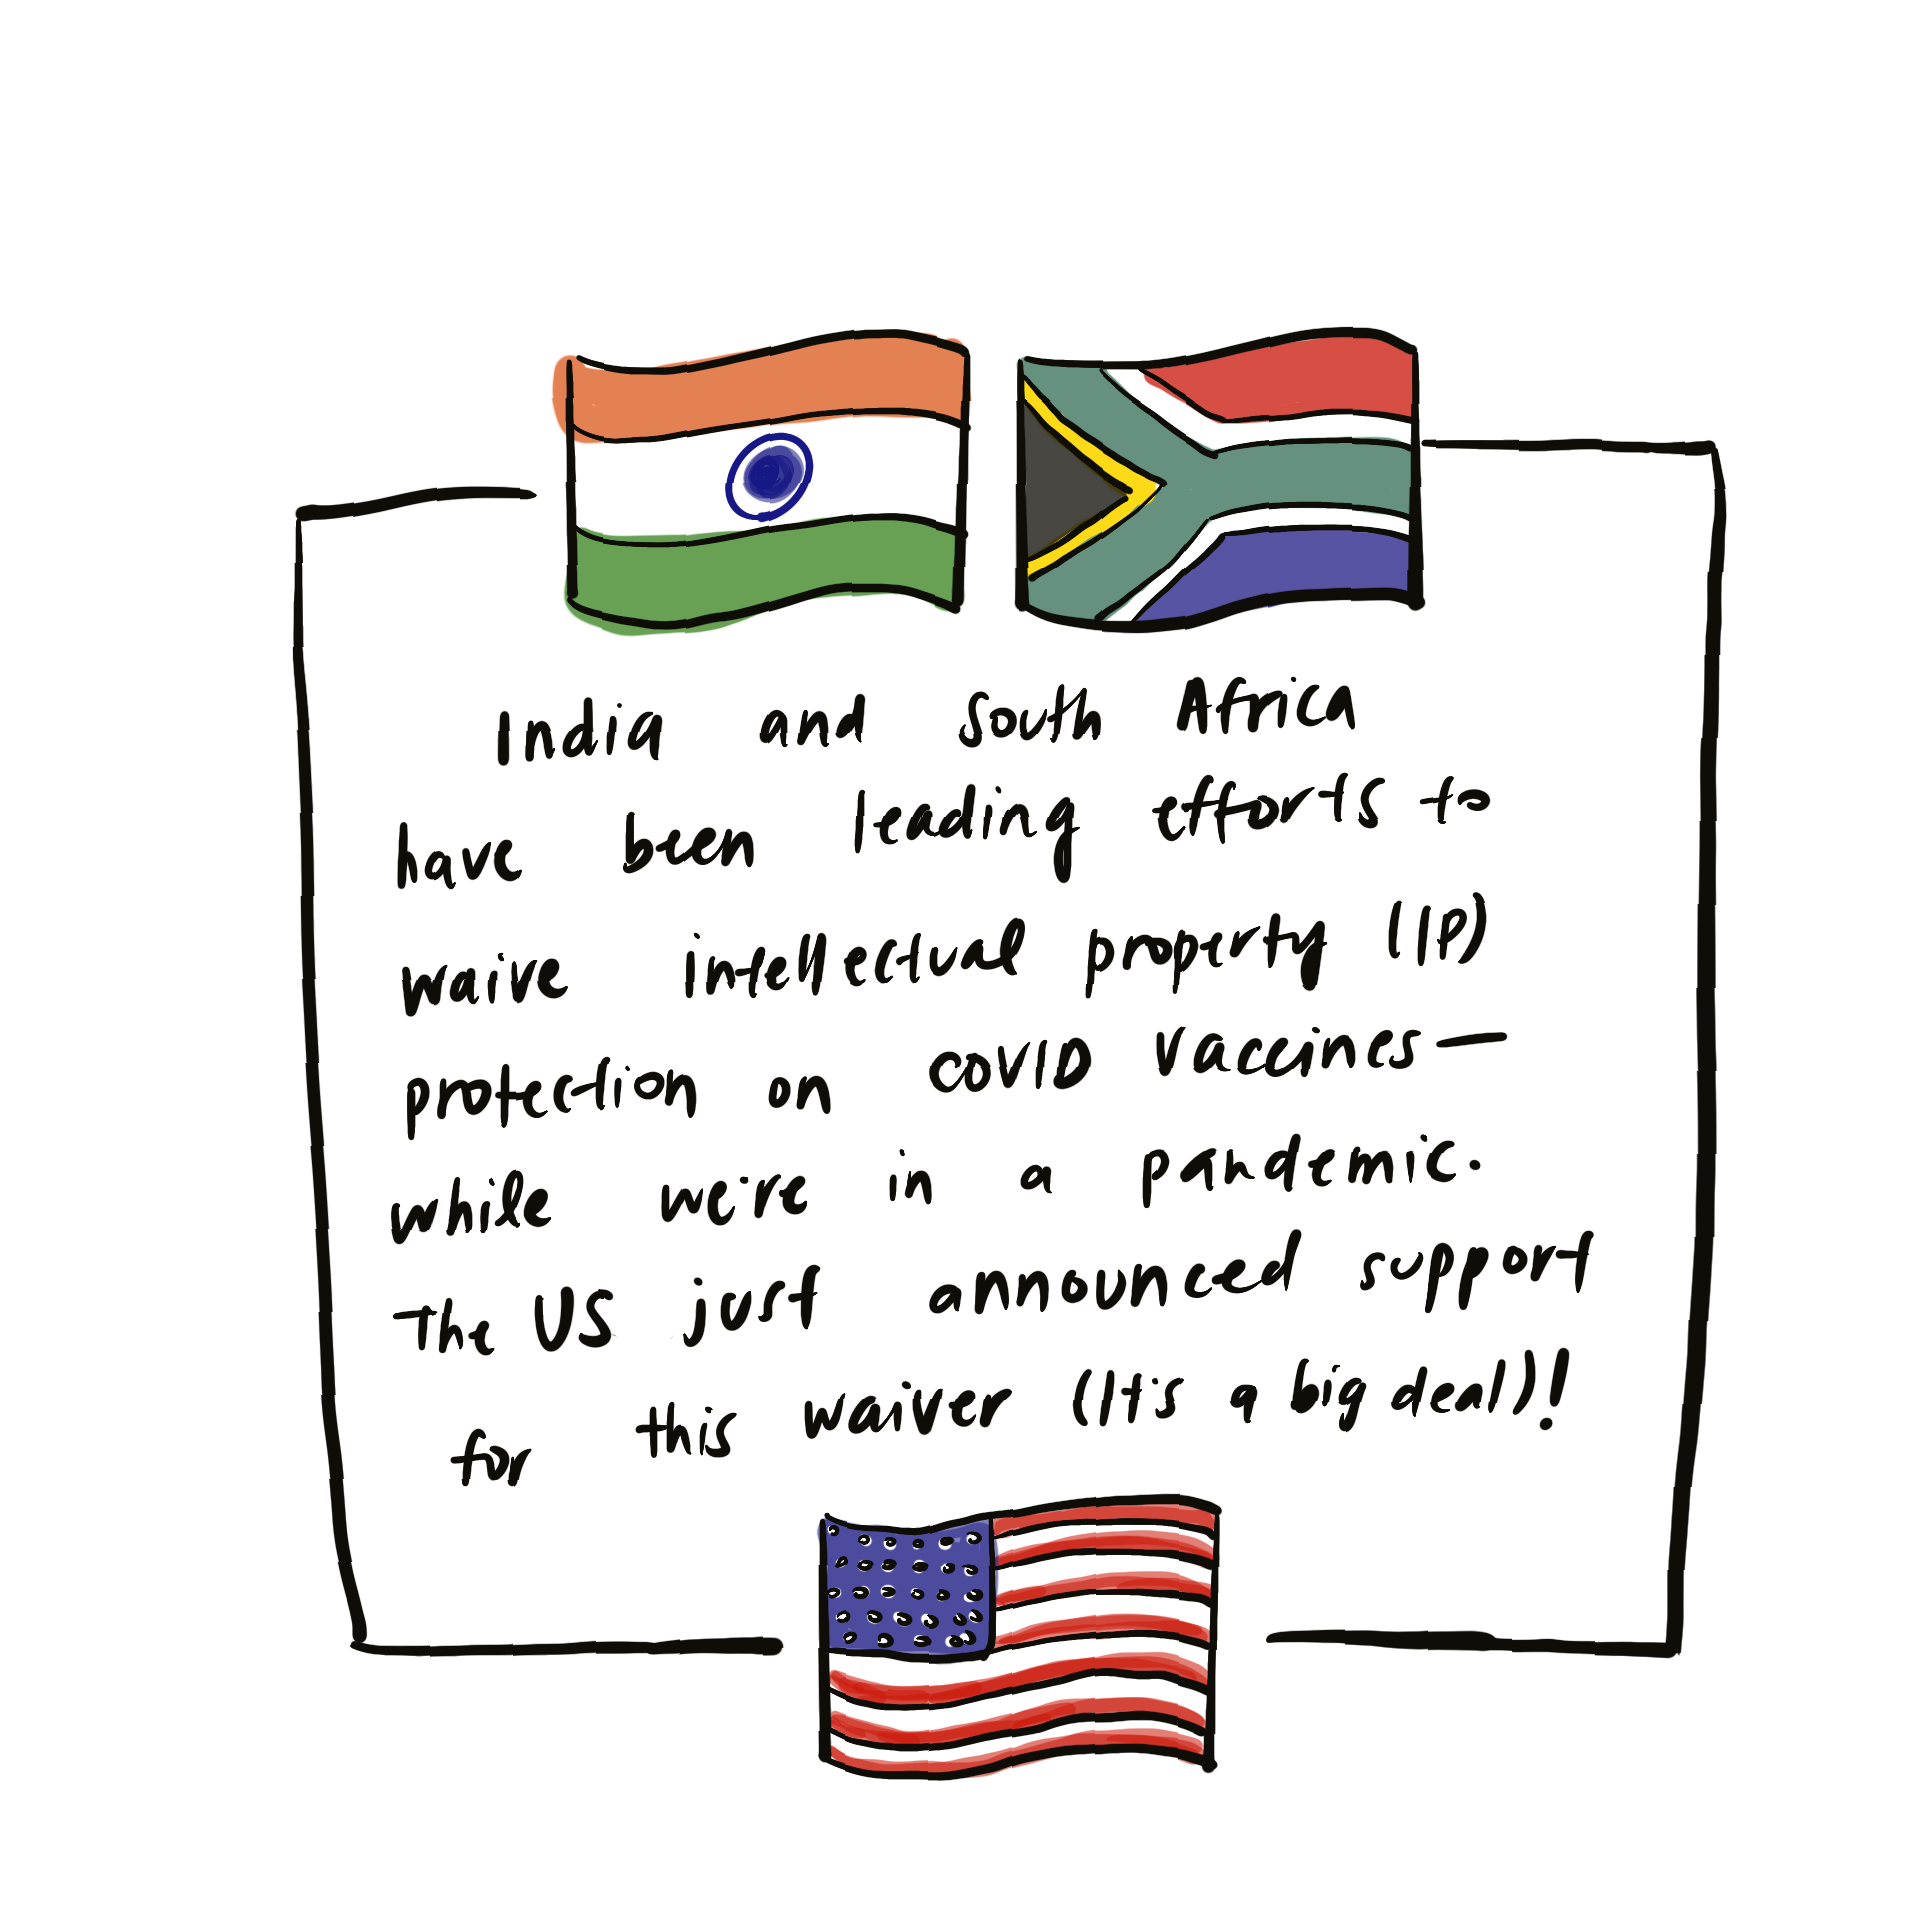 India and South Africa
have been leading efforts to
waive intellectual property (IP)
protection on COVID vaccines—
while we're in a pandemic.
The US just announced support
for this waiver (It's a big deal)!